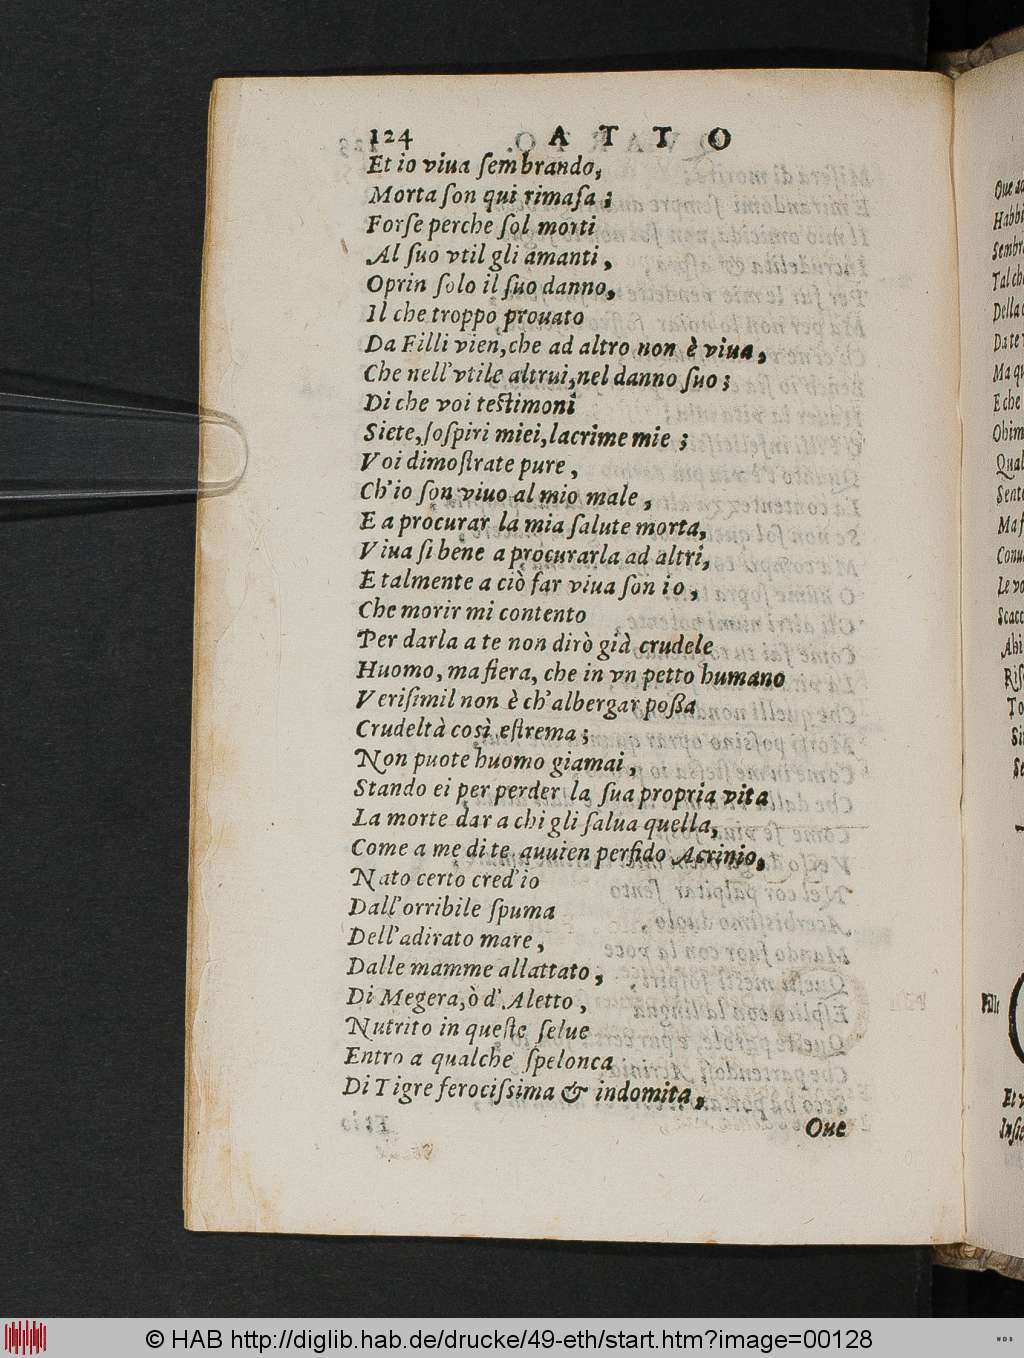 124 ATTO
Et io viua ſembrando,
Morta ſon qui rimaſa;
Forſe perche ſol morti
Al ſuo vtil gli amanti,
Oprin ſolo il ſuo danno,
Il che troppo prouato
Da Filli vien, che ad altro non è viua,
Che nell'vtile altrui, nel danno ſuo;
Di che voi teſtimoni
Siete, ſoſpiri miei, lacrime mie;
Voi dimoſtrate pure,
Ch'io ſon viuo al mio male,
E a procurar la mia ſalute morta,
Viua ſi bene a procurarla ad altri,
E talmente a ciò far viua ſon io,
Che morir mi contento
Per darla a te non dirò già crudele
Huomo, ma fiera, che in vn petto humano
Veriſimil non è ch'albergar poßa
Crudeltà così eſtrema;
Non puote huomo giamai,
Stando ei per perder la ſua propria vita
La morte dar a chi gli ſalua quella,
Come a me di te auuien perfido Acrinio,
Nato certo cred'io
Dall'orribile ſpuma
Dell'adirato mare,
Dalle mamme allattato,
Di Megera, ò d'Aletto,
Nutrito in queſte ſelue
Entro a qualche ſpelonca
Di Tigre ferociſsima & indomita,
Oue
Habbi
Tal che
Della
Da te
Ma qu
E che
Ohim
Qual
Sent
Ma ſ
Le vo
Scacc
Ahi
Filli
Et v
Inſie
© HAB http://diglib.hab.de/drucke/49-eth/start.htm?image=00128